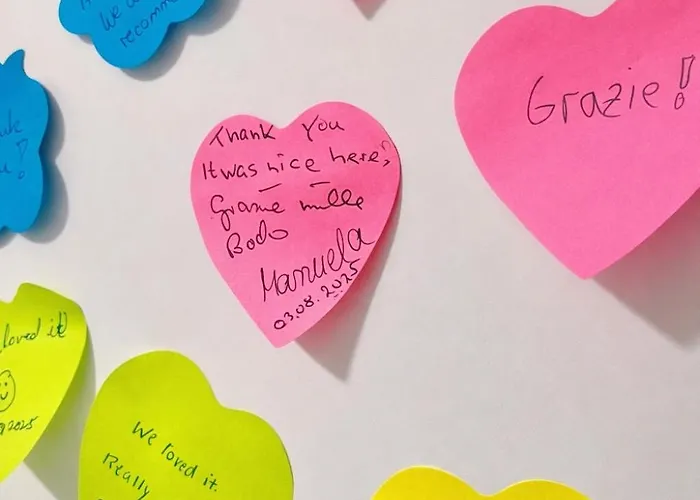 We
recomm
Thank You
It was nice here,
Grazie mille
Bodo
Manuela
03.08.2025
Grazie!
loved it!
2025
We loved it.
Really